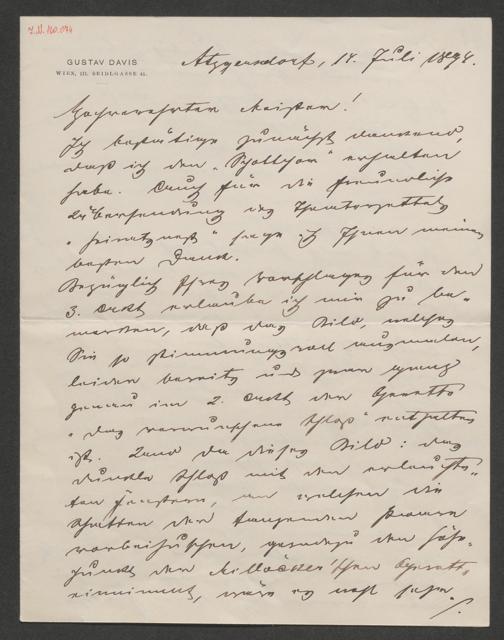 I.N. 160.074
GUSTAV DAVIS
WIEN, III. SEIDLGASSE
Atzgersdorf, 14. Juli 1894.
Hochverehrter Meister!
Ich bestätige zunächst dankend,
daß ich den „Spottchor“ erhalten
habe. Auch für die freundliche
Übersendung des Theaterzettels
sage ich Ihnen meinen
besten Dank.
Bezüglich Ihres Vorschlages für den
3. Act erlaube ich mir zu be-
merken, daß das Bild, welches
Sie so stimmungsvoll ausmalen,
leider bereits und zwar ganz
genau im 2. Act der Operette
„das verwunschene Schloß“ enthalten
ist. Und da dieses Bild: das
dunkle Schloß mit den erleuchte-
ten Fenstern, an welchen die
Schatten der tanzenden Paare
vorbeihuschen, geradezu den Höhe-
punkt der Millöcker'schen Operette
einnimmt, wäre es wohl